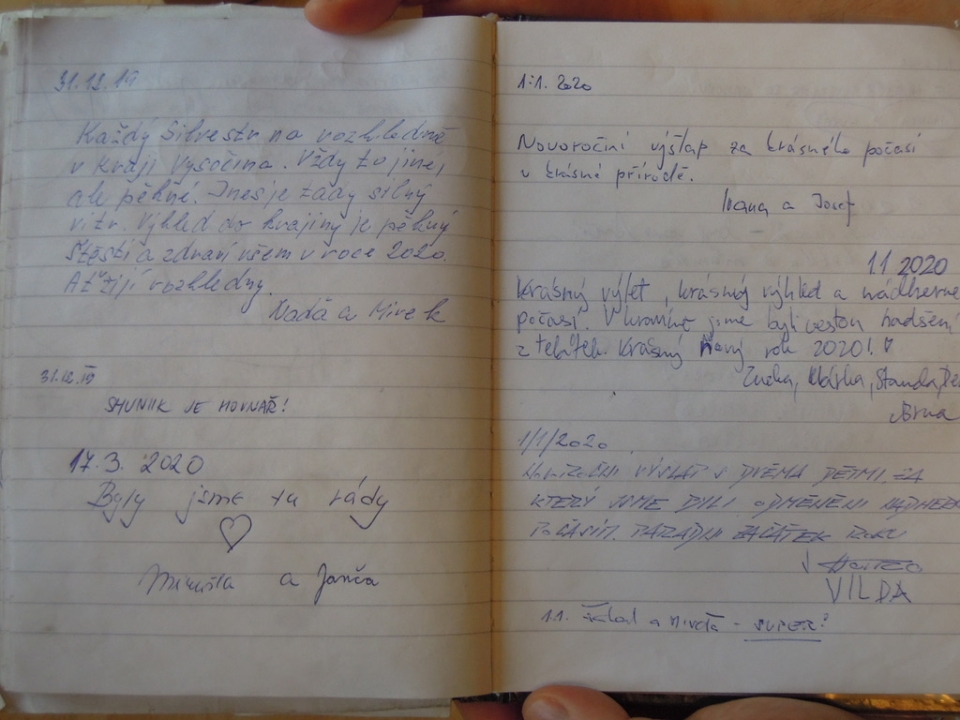 31.12.19
Každý Silvestr na rozhledně
v kraji Vysočina. Vždy to jinej
ale pěkné. Dnes je tady silný
vítr. Výhled do krajiny je pěkný
Štěstí a zdraví všem v roce 2020.
Ať žijí rozhledny.
Naďa a Mirek
31.12.19
JE HOVNAŘ!
17.3. 2020
Byly jsme tu rády
a Janča
1.1. 2020
Novoroční výšlap za krásného počasí
v krásné přírodě.
Ivana a Josef
1.1 2020
Krásný výlet, krásný výhled a nádherné
počasí. V jsme byli nadšení
z Krásný nový rok 2020!
Klárka, Standa,
Brna
1/1/2020
VÝŠLAP S DVĚMA DĚTMI, ZA
KTERÝ JSME BYLI ODMĚNĚNI
POČASÍM. PARÁDNÍ ZAČÁTEK ROKU
VILDA
1.1. a - SUPER!